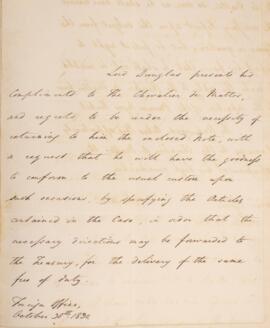 Lord Douglas presents his
compliments to the Chevalier de Mattos,
and regrets to be under the necessity of
returning to him the enclosed Note, with
a request that he will have the goodness
to conform to the usual custom upon
such occasions, by specifying the Articles
contained in the Case, in order that the
necessary directions may be forwarded to
the Treasury, for the delivery of the same
free of duty.
Foreign Office,
October 30th 183